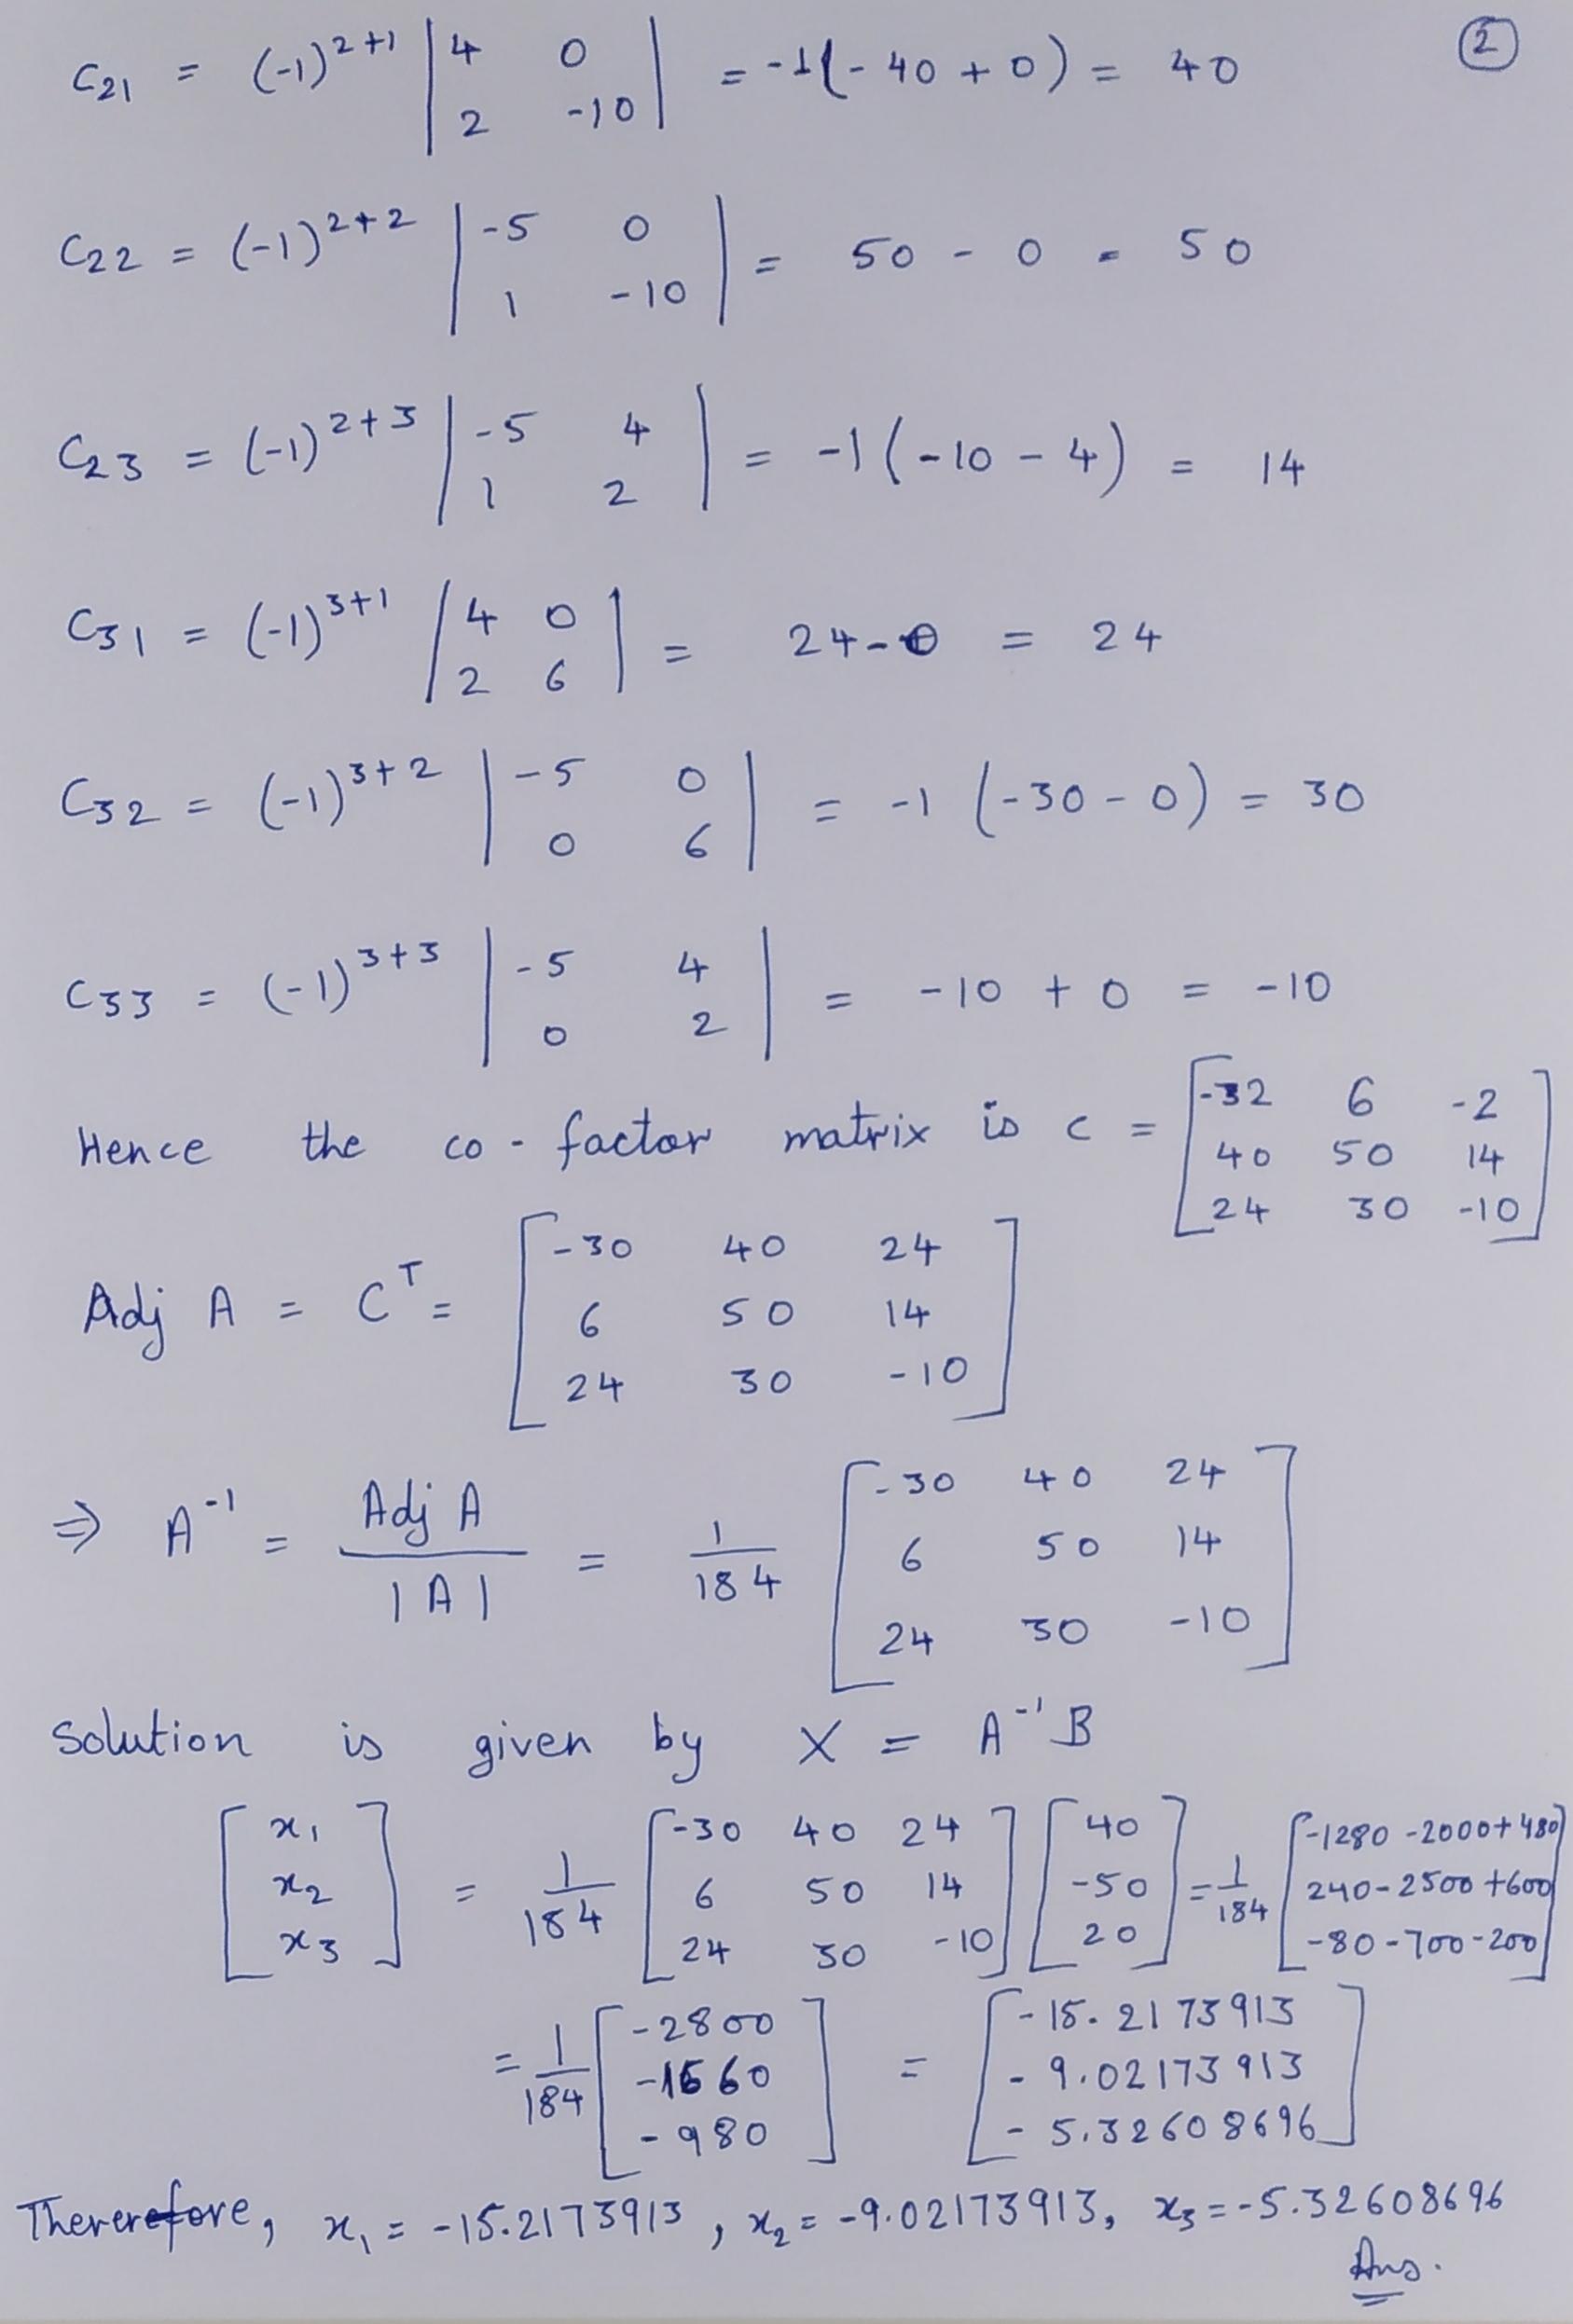 ②
C₂₁ = (-1)²⁺¹ | 4 0 ; 2 -10 | = -1(-40 + 0) = 40
C₂₂ = (-1)²⁺² | -5 0 ; 1 -10 | = 50 - 0 = 50
C₂₃ = (-1)²⁺³ | -5 4 ; 1 2 | = -1(-10 - 4) = 14
C₃₁ = (-1)³⁺¹ | 4 0 ; 2 6 | = 24 - 0 = 24
C₃₂ = (-1)³⁺² | -5 0 ; 0 6 | = -1 (-30 - 0) = 30
C₃₃ = (-1)³⁺³ | -5 4 ; 0 2 | = -10 + 0 = -10
Hence the co-factor matrix is C = [ -32 6 -2 ; 40 50 14 ; 24 30 -10 ]
Adj A = Cᵀ = [ -30 40 24 ; 6 50 14 ; 24 30 -10 ]
⇒ A⁻¹ = Adj A / |A| = 1/184 [ -30 40 24 ; 6 50 14 ; 24 30 -10 ]
Solution is given by X = A⁻¹B
[ x₁ ; x₂ ; x₃ ] = 1/184 [ -30 40 24 ; 6 50 14 ; 24 30 -10 ] [ 40 ; -50 ; 20 ] = 1/184 [ -1280 -2000 + 480 ; 240 - 2500 + 600 ; -80 - 700 - 200 ]
= 1/184 [ -2800 ; -1660 ; -980 ] = [ -15.2173913 ; -9.02173913 ; -5.32608696 ]
Thererefore, x₁ = -15.2173913, x₂ = -9.02173913, x₃ = -5.32608696
Ans.